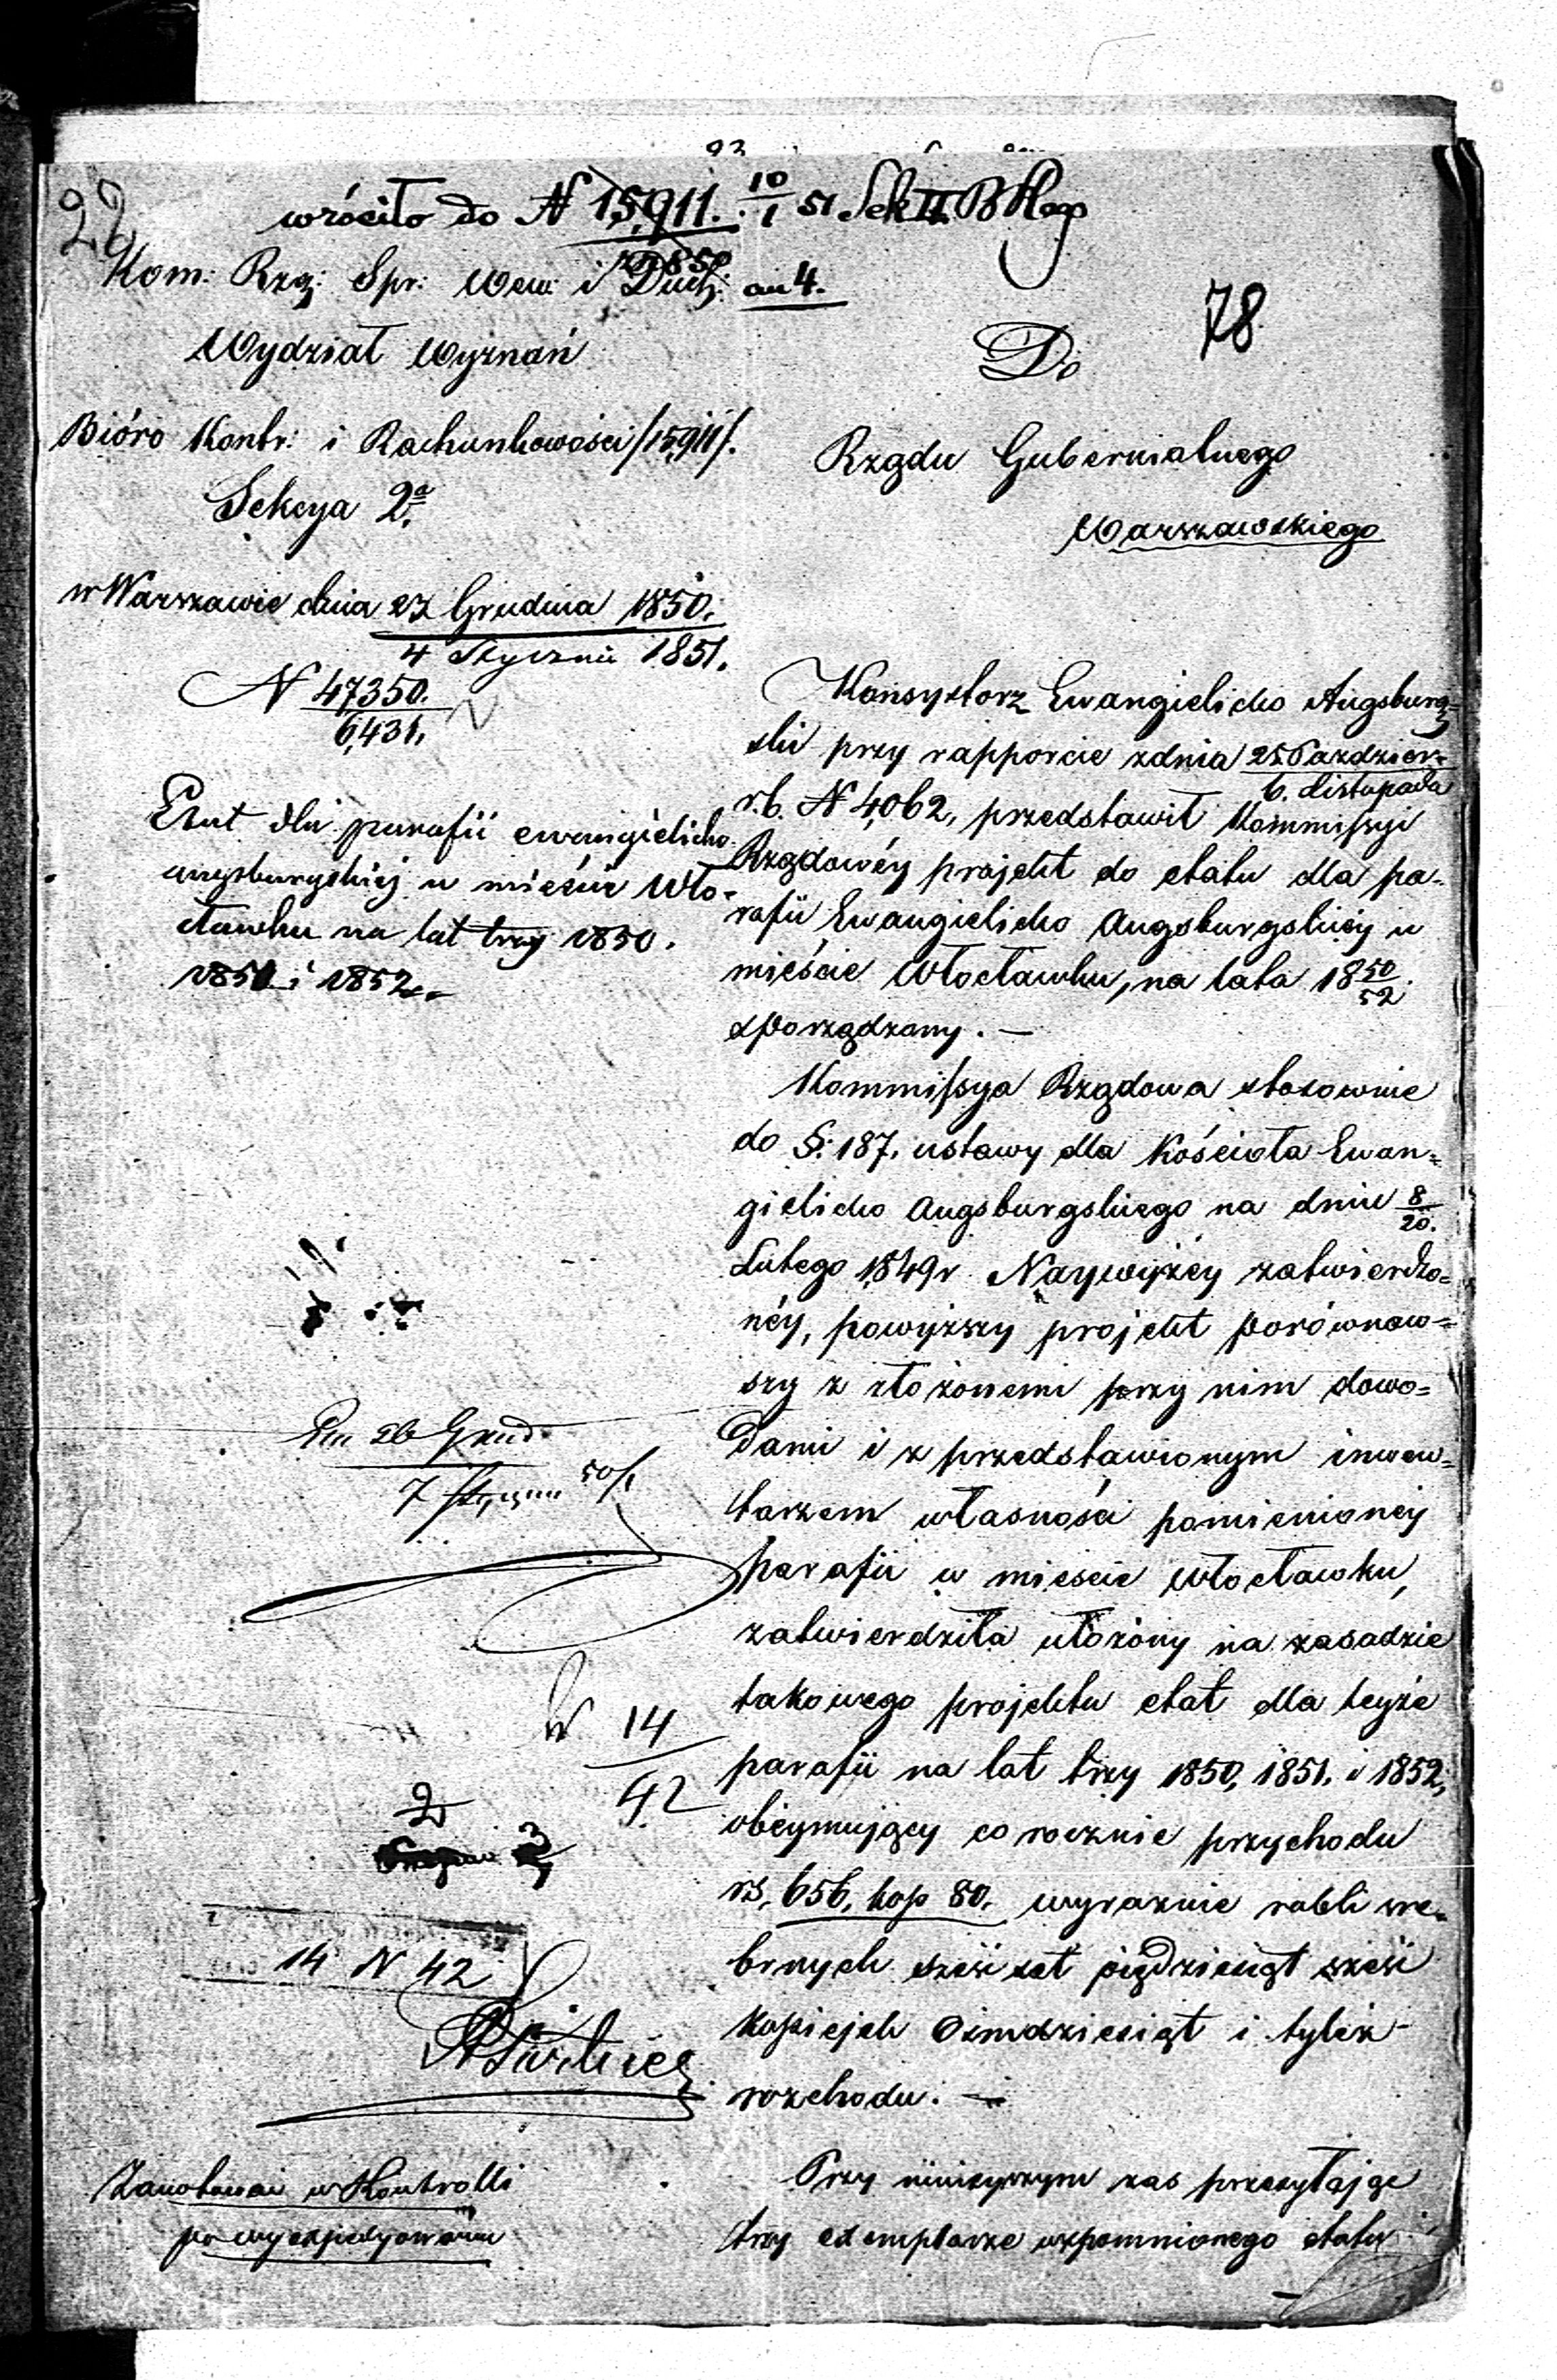 22
wróciło do N 15,911. 10/1 51 Sek II.
1850
Kom: Rzą: Spr: Wew: i Duch: an 4.
78
Wydział Wyznań
Bióro Kontr: i Rachunkowości /15,911/.
Sekcya 2a.
w Warszawie dnia 23 Grudnia 1850.
4 Stycznia 1851.
N 47350.
6,431.
Etat dla parafii ewangielicko
augsburgskiéj w mieście Wło-
cławku na lat trzy 1850.
1851 i 1852.
26 Grud
7 Stycznia 50/1
N 14
42
2
14 N 42
Zanotować w Kontrolli
po wyexpedyowaniu
Do
Rządu Gubernialnego
Warszawskiego
Konsystorz Ewangielicko Augsburg=
ski przy rapporcie z dnia 25 Paździer=
6. Listopada
r.b. N 4,062, przedstawił Kommissyi
Rządowéy projekt do etatu dla pa-
rafii Ewangielicko Augsburgskiéj w
mieście Włocławku, na lata 1850/52
sporządzony. —
Kommissya Rządowa stosownie
do §: 187. ustawy dla Kościoła Ewan=
gielicko Augsburgskiego na dniu 8/20.
Lutego 1849 r Naywyżéy zatwierdzo=
néy, powyższy projekt porównaw=
szy z złożonemi przy nim dowo=
dami i z przedstawionym inwen=
tarzem własności pomienionéj
parafii w mieście Włocławku,
zatwierdziła ułożony na zasadzie
takowego projektu etat dla teyże
parafii na lat trzy 1850, 1851. i 1852,
obéymujący corocznie przychodu
rs. 656, kop 80. wyraźnie rubli sre-
brnych sześćset pięćdziesiąt sześć
kopiejek ośmdziesiąt i tyleż
rozchodu. —
Przy niniejszym zaś przesyłając
trzy exemplarze wspomnionego etatu